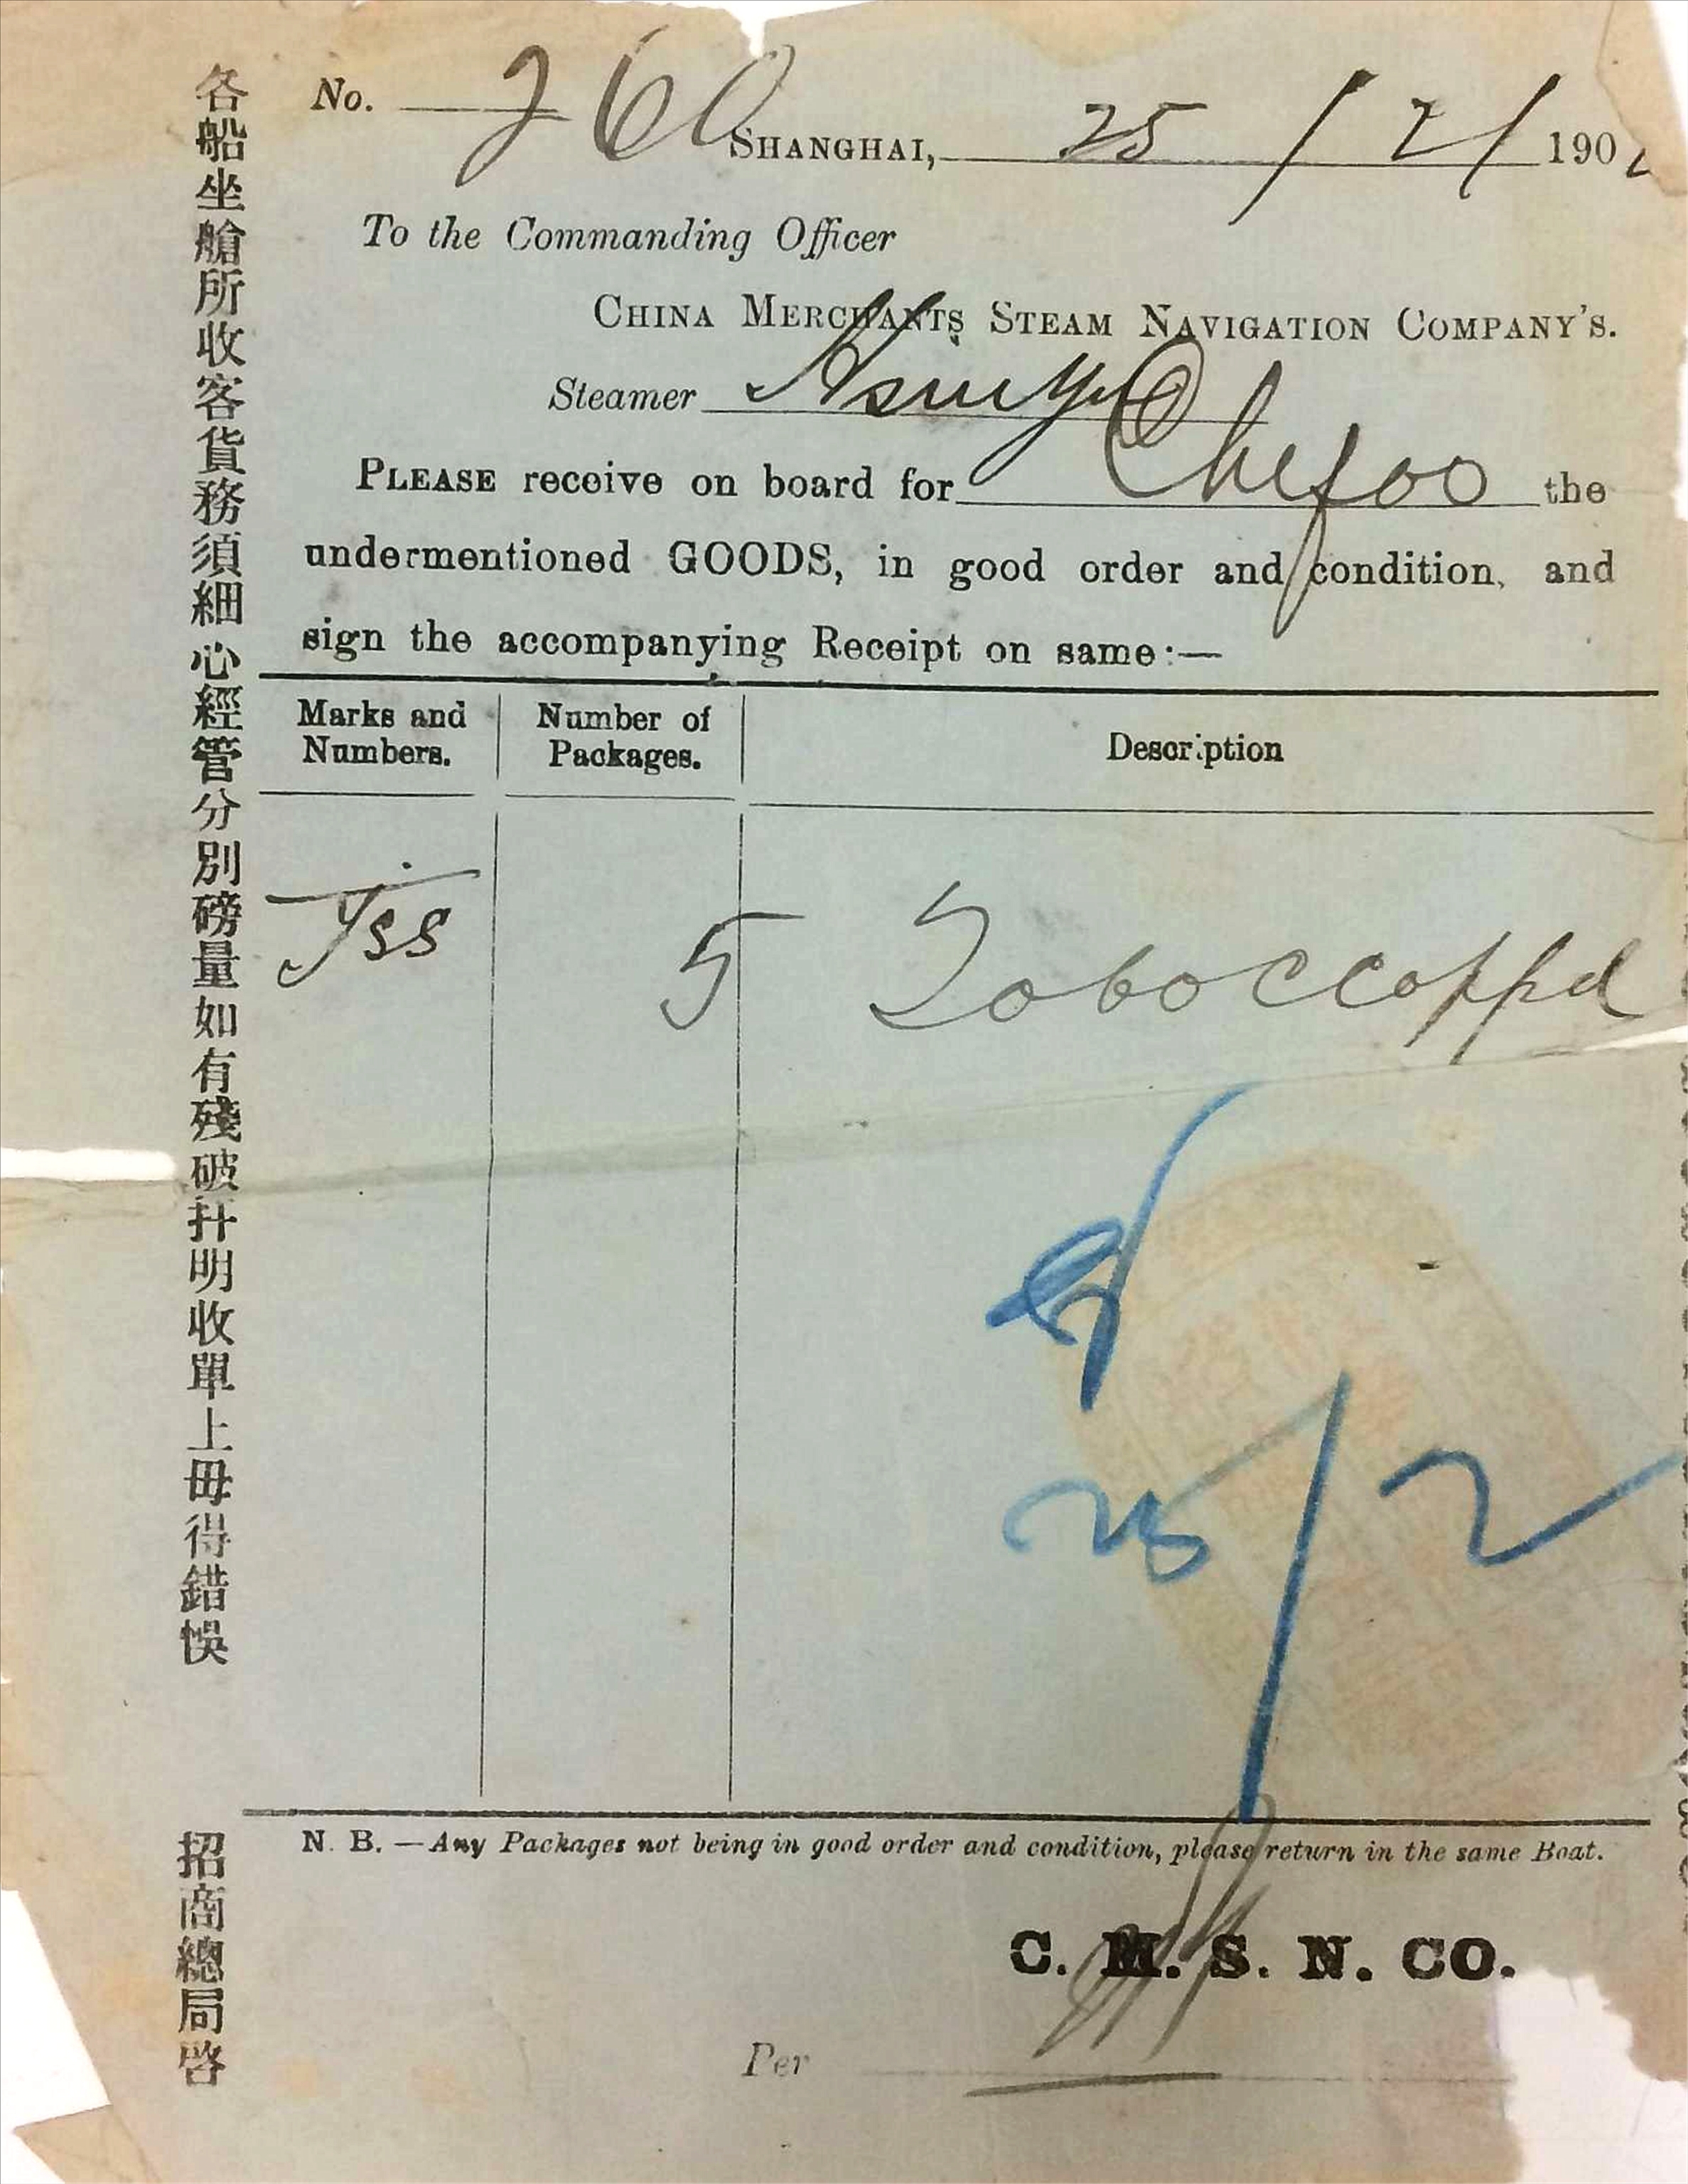 各船坐艙所收客貨務須細心經管分別磅量如有殘破扦明收單上毋得錯悞
招商總局啓
No. 260
SHANGHAI, 25 / 2 / 190
To the Commanding Officer
CHINA MERCHANTS STEAM NAVIGATION COMPANY'S.
Steamer
PLEASE receive on board for Chefoo the
undermentioned GOODS, in good order and condition, and
sign the accompanying Receipt on same:—
Marks and Numbers. Number of Packages. Description
5
25/2
N. B. — Any Packages not being in good order and condition, please return in the same Boat.
C. M. S. N. CO.
Per